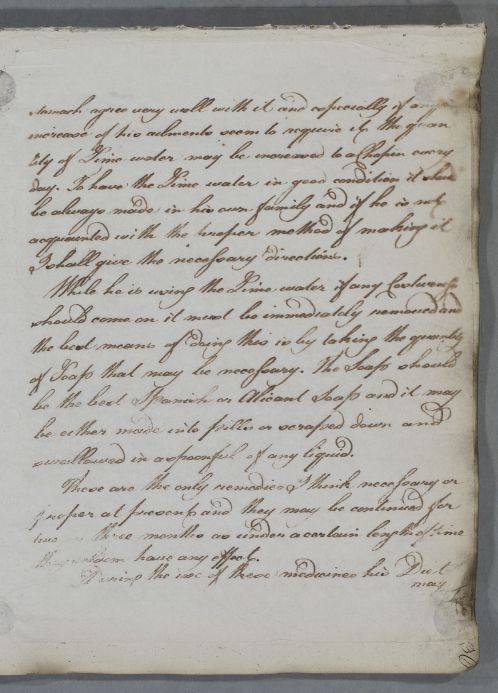 stomach agree very well with it and especially if any
increase of his ailments seem to require it, the quan
tity of Lime water may be increased to a Chopin every
day. To have the Lime water in good condition it should
be always made in his own family and if he is not
acquainted with the proper method of making it
I shall give the necessary directions.
While he is using the Lime water if any Costiveness
should come on it must be immediately removed and
the best means of doing this is by taking the quantity
of Soap that may be necessary. The Soap should
be the best Spanish or Alicant Soap and it may
be either made into pills or scraped down and
swallowed in a spoonful of any liquid.
These are the only remedies I think necessary or
proper at present and they may be continued for
two or three months as under a certain length of time
they seldom have any effect.
During the use of these medicines his Diet
may
30